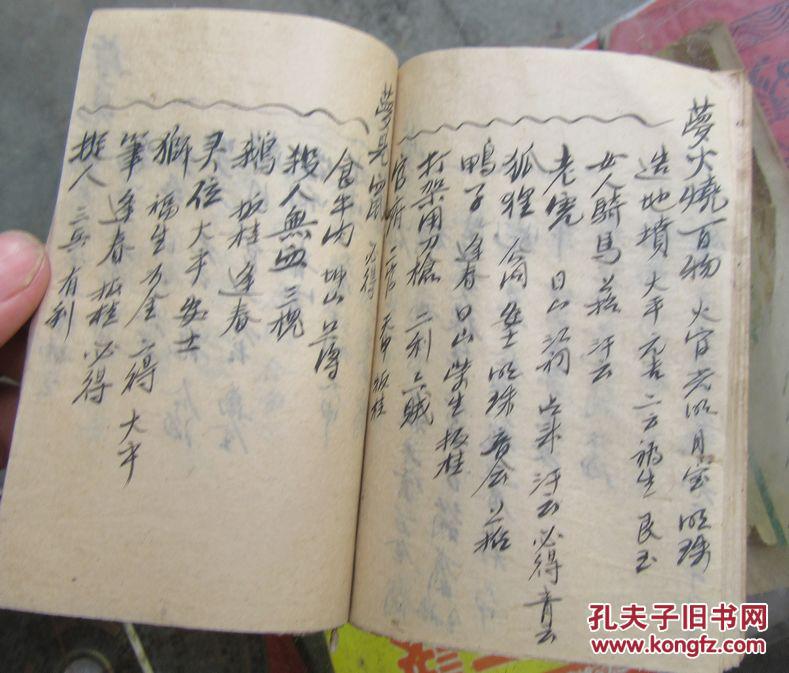 夢火燒百物 火官 光明 月宝 明珠
造地墳 太平 元吉 二方 福生 良玉
女人騎馬 汗云
老虎 日山 江祠 占米 汗云 必得 青云
狐狸 合同 安士 明珠 音会
鴨子 逢春 日山 榮生 扳桂
打架用刀槍 二利 六贼
官府 二官 天申 扳桂
夢見 必得
食牛肉 坤山
殺人無血 三槐
鵝 扳桂 逢春
灵位 太平 安士
獅 福生 万金 必得 太平
筆 逢春 扳桂 必得
人 三兵 有利
孔夫子旧书网
www.kongfz.com